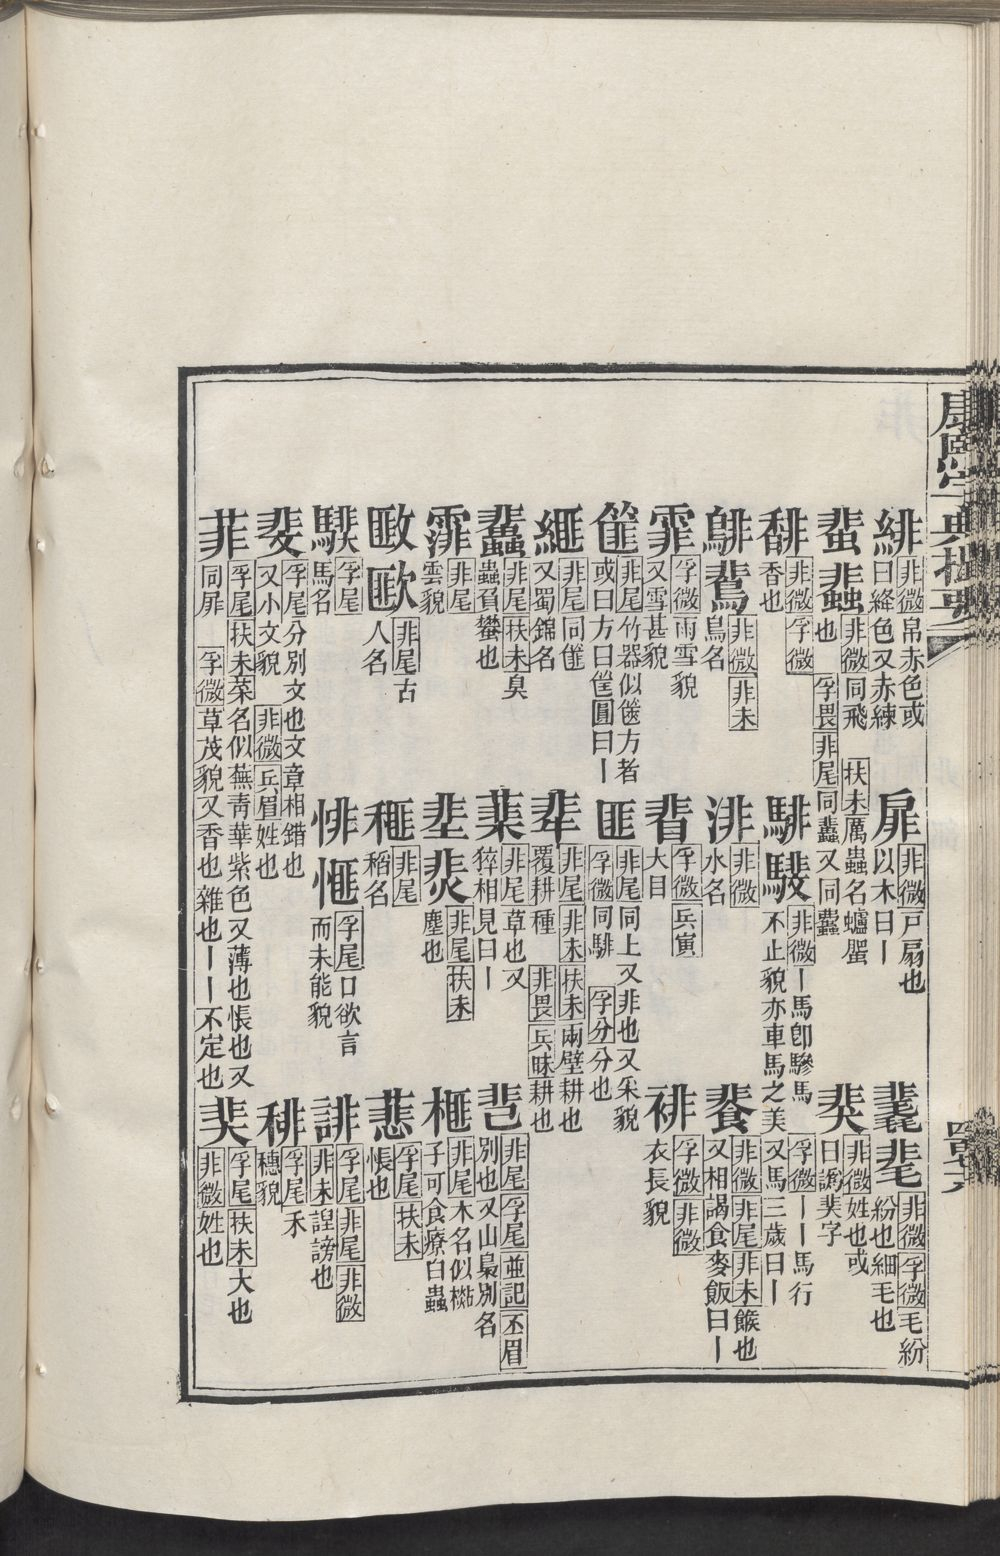 康熙字典撮要
緋 非微帛赤色或曰絳色又赤練
扉 非微戸扇也以木曰丨
𣰆 非微孚微毛紛紛也細毛也
蜚 蜚 非微同飛 扶未厲蟲名蠦蜰也 孚畏非尾同蠹又同蠹
騑 非微丨馬卽驂馬不止貌亦車馬之美
孚微丨丨馬行又馬三歲曰丨
裴 非微姓也或曰譌裴字
馡 非微孚微香也
鯡 非微非未鳥名
渄 非微水名
餥 非微非尾非未餱也又相謁食麥飯曰丨
霏 孚微雨雪貌又雪甚貌
䀟 孚微兵寅大目
裶 孚微非微衣長貌
篚 非尾竹器似篋方者或曰方曰筐圓曰丨
匪 非尾同上又非也又采貌 孚微同騑 孚分分也
緋 非尾同篚又蜀錦名
耕 非尾非未扶未兩壁耕也覆耕種 非畏兵昧耕也
蠹 非尾扶未臭蟲負蠜也
菒 非尾草也又猝相見曰丨
悲 非尾孚尾並記丕眉別也又山梟別名
霏 非尾雲貌
非尾扶未塵也
榧 非尾木名似㯕子可食療白蟲
非尾古人名
非尾稻名
蕜 孚尾扶未悵也
騛 孚尾馬名
悱 孚尾口欲言而未能貌
誹 孚尾非尾非微非未諻謗也
斐 孚尾分別文也文章相錯也又小文貌 非微兵眉姓也
孚尾禾穗貌
菲 孚尾扶未菜名似蕪靑華紫色又薄也悵也又同屝 孚微草茂貌又香也雜也丨丨不定也
孚尾扶未大也非微姓也